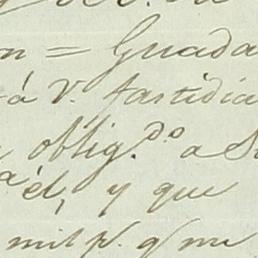 n = Guada
rá V. fastidia
oblig.do a S
él, y que
mil p.s q me